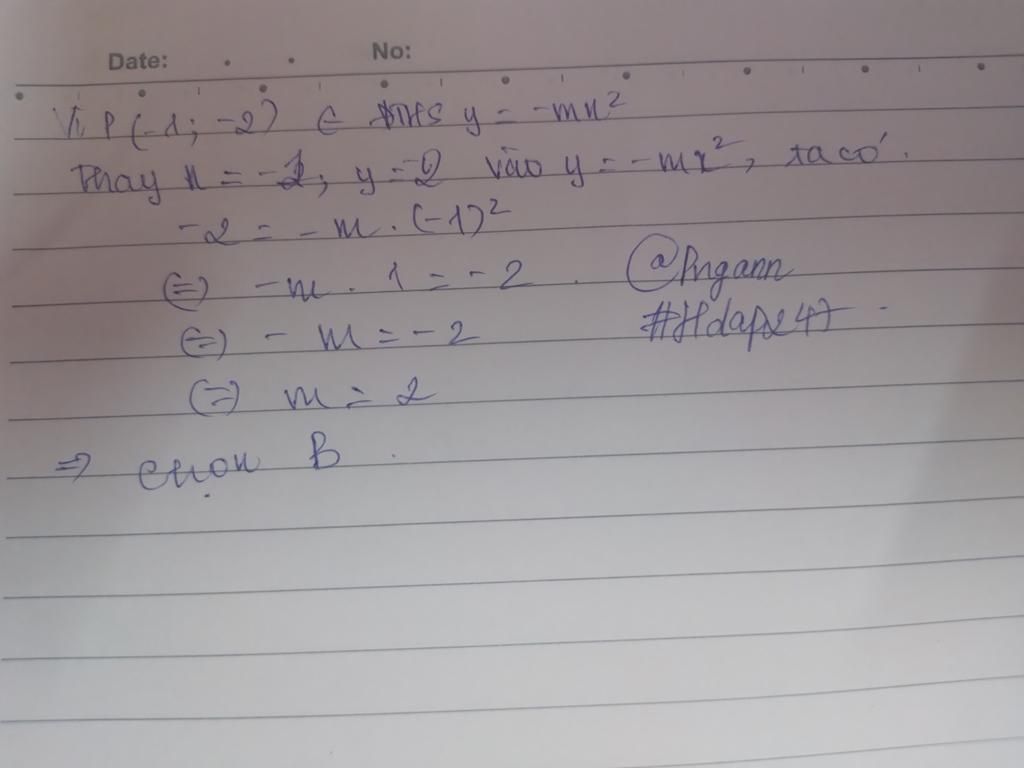 Date: No:
Vì P(-1; -2) ∈ ĐTHS y = -mx²
Thay x = -1, y = -2 vào y = -mx², ta có.
-2 = -m . (-1)²
(=) -m . 1 = -2 . @Pngann
(=) - m = -2 #Hdap247
(=) m = 2
=> chọn B .